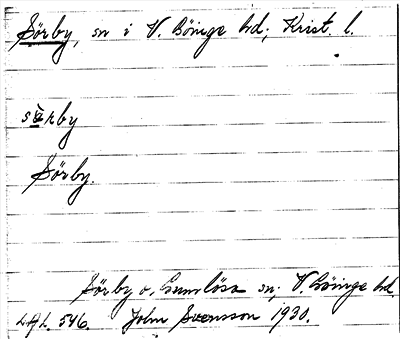 Sörby, sn i V. Göinge hd; Krist. l.
særby
Sörby.
Sörby o. Gumlösa sn; V. Göinge hd.
L.A.L. 546. John Svensson 1930.